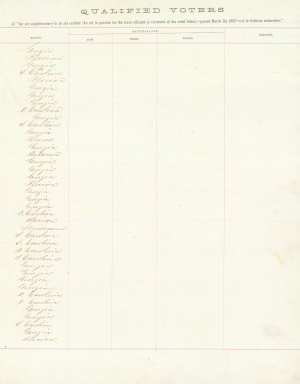 QUALIFIED VOTERS
of "An act supplementary to an act entitled 'An act to provide for the more efficient government of the rebel States,'—passed March 23, 1867—and to facilitate restoration."
NATURALIZED
NATIVITY.
DATE.
WHERE.
REMARKS.
Georgia
Florida
Georgia
S. Carolina
Florida
Georgia
Georgia
Georgia
S. Carolina
Georgia
S. Carolina
Georgia
Florida
Georgia
Alabama
Georgia
Georgia
Florida
Georgia
Georgia
Georgia
S. Carolina
Florida
S. Carolina
S. Carolina
S. Carolina
S. Carolina
Georgia
Georgia
Georgia
Georgia
S. Carolina
S. Carolina
Georgia
Georgia
S. Carolina
Georgia
Florida